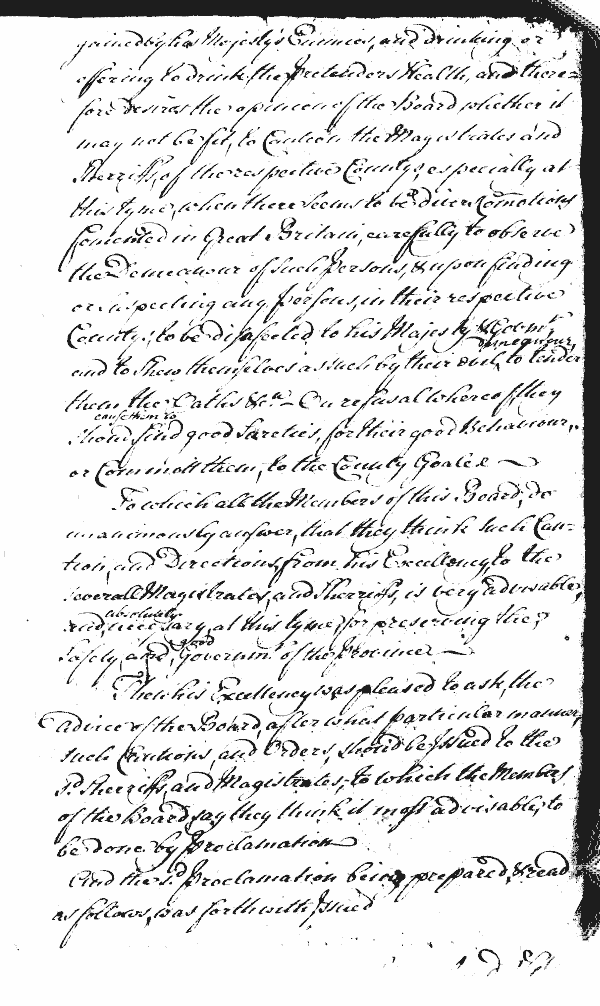 gained by his Majestys Enemies, and drinking or
offering to drink the Pretenders Health, and there=
fore desires the opinion of the Board, whether it
may not be fit, to Caution the Magistrates and
Sherriffs, of the respective Countys, especially at
this tyme, when there seems to be diver Comotions
fomented in Great Britain, carefully to observe
the Demeanour of such Persons, & upon finding
or suspecting any Persons, in their respective
Countys; to be disafected to his Majesty & Governmt.
and to shew themselves as such by their evil demeanour, to tender
them the Oaths &ca. On refusal whereof they
should cause them to find good Sureties, for their good Behaviour,
or Committ them, to the County Goales
To which all the Members of this Board, do
unanimously answer, that they think such Cau=
tion, and Directions, from his Excellency, to the
severall Magistrates, and Sherriffs, is very advisable,
and absolutely necessary, at this tyme, for preserving the
Safety, and good Governmt. of the Province
Then his Excellency was pleased to ask the
advice of the Board, after what particular manner,
such Cautions, and Orders, should be Issued to the
sd. Sherriffs, and Magistrates, to which the Members
of the Board say they think it most advisable, to
be done by Proclamation
And the sd. Proclamation being prepared, & read
as follows, was forthwith Issued